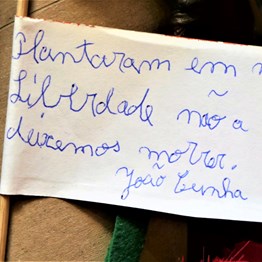 Plantaram em
Liberdade não a
deixemos morrer.
João Cunha